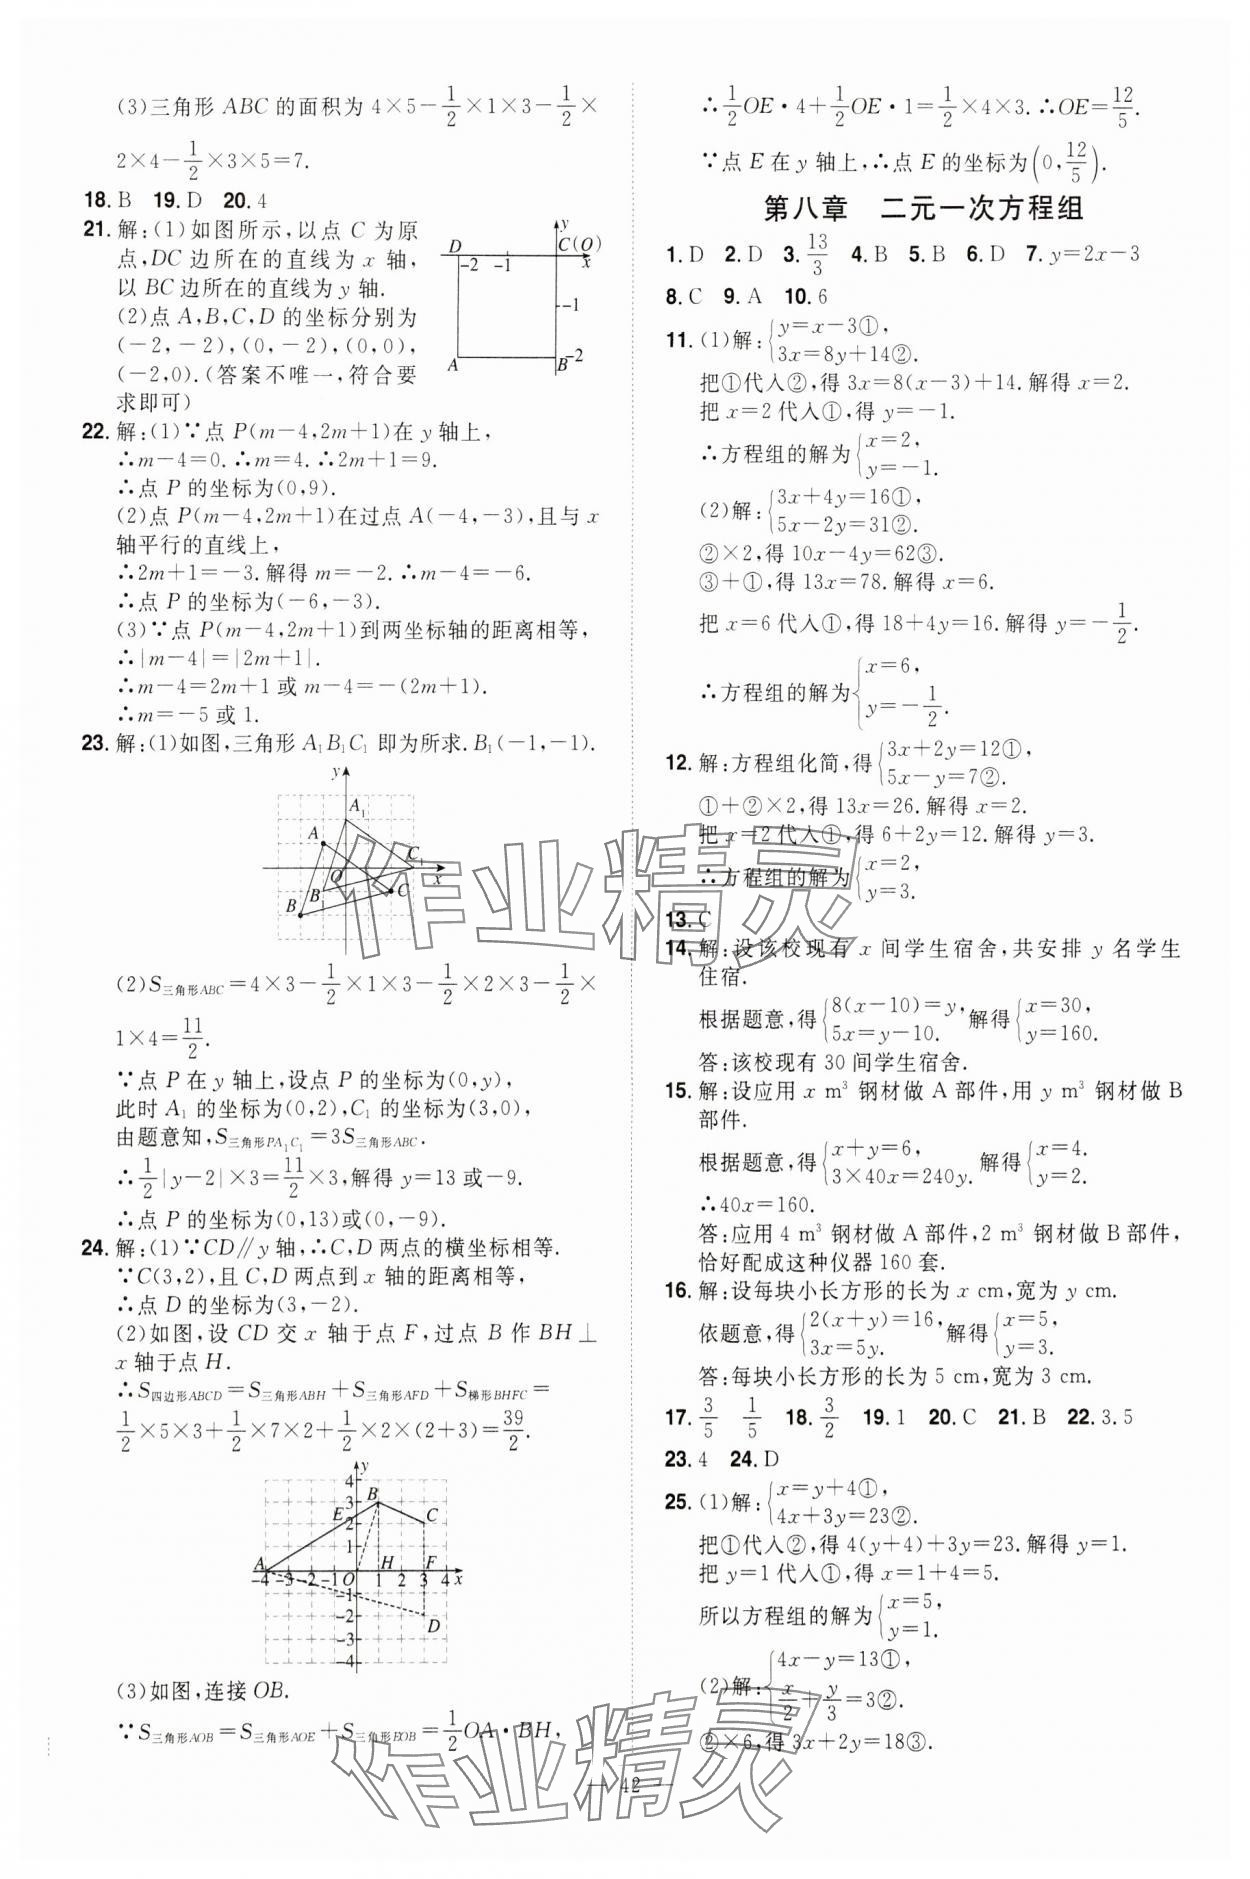 (3)三角形 ABC 的面积为 4×5−1/2×1×3−1/2×
2×4−1/2×3×5=7.
18. B 19. D 20. 4
21. 解:(1)如图所示,以点 C 为原
点,DC 边所在的直线为 x 轴,
以 BC 边所在的直线为 y 轴.
(2)点 A,B,C,D 的坐标分别为
(−2,−2),(0,−2),(0,0),
(−2,0).(答案不唯一,符合要
求即可)
y
D C(O)
−2 −1 x
−1
A B −2
22. 解:(1)∵点 P(m−4,2m+1)在 y 轴上,
∴m−4=0.∴m=4.∴2m+1=9.
∴点 P 的坐标为(0,9).
(2)点 P(m−4,2m+1)在过点 A(−4,−3),且与 x
轴平行的直线上,
∴2m+1=−3.解得 m=−2.∴m−4=−6.
∴点 P 的坐标为(−6,−3).
(3)∵点 P(m−4,2m+1)到两坐标轴的距离相等,
∴|m−4|=|2m+1|.
∴m−4=2m+1 或 m−4=−(2m+1).
∴m=−5 或 1.
23. 解:(1)如图,三角形 A₁B₁C₁ 即为所求.B₁(−1,−1).
y
A₁
A
C₁
O x
B₁ C
B
(2)S三角形ABC=4×3−1/2×1×3−1/2×2×3−1/2×
1×4=11/2.
∵点 P 在 y 轴上,设点 P 的坐标为(0,y),
此时 A₁ 的坐标为(0,2),C₁ 的坐标为(3,0),
由题意知,S三角形PA₁C₁=3S三角形ABC.
∴1/2|y−2|×3=11/2×3,解得 y=13 或−9.
∴点 P 的坐标为(0,13)或(0,−9).
24. 解:(1)∵CD∥y 轴,∴C,D 两点的横坐标相等.
∵C(3,2),且 C,D 两点到 x 轴的距离相等,
∴点 D 的坐标为(3,−2).
(2)如图,设 CD 交 x 轴于点 F,过点 B 作 BH⊥
x 轴于点 H.
∴S四边形ABCD=S三角形ABH+S三角形AFD+S梯形BHFC=
1/2×5×3+1/2×7×2+1/2×2×(2+3)=39/2.
y
4
3 B
E 2 C
1
A H F
−4 −3 −2 −1 O 1 2 3 4 x
−1
−2 D
−3
−4
(3)如图,连接 OB.
∵S三角形AOB=S三角形AOE+S三角形EOB=1/2OA·BH,
∴1/2OE·4+1/2OE·1=1/2×4×3.∴OE=12/5.
∵点 E 在 y 轴上,∴点 E 的坐标为(0,12/5).
第八章 二元一次方程组
1. D 2. D 3. 13/3 4. B 5. B 6. D 7. y=2x−3
8. C 9. A 10. 6
11. (1)解:{y=x−3①,
3x=8y+14②.
把①代入②,得 3x=8(x−3)+14.解得 x=2.
把 x=2 代入①,得 y=−1.
∴方程组的解为{x=2,
y=−1.
(2)解:{3x+4y=16①,
5x−2y=31②.
②×2,得 10x−4y=62③.
③+①,得 13x=78.解得 x=6.
把 x=6 代入①,得 18+4y=16.解得 y=−1/2.
∴方程组的解为{x=6,
y=−1/2.
12. 解:方程组化简,得{3x+2y=12①,
5x−y=7②.
①+②×2,得 13x=26.解得 x=2.
把 x=2 代入①,得 6+2y=12.解得 y=3.
∴方程组的解为{x=2,
y=3.
13. C
14. 解:设该校现有 x 间学生宿舍,共安排 y 名学生
住宿.
根据题意,得{8(x−10)=y, 5x=y−10. 解得{x=30, y=160.
答:该校现有 30 间学生宿舍.
15. 解:设应用 x m³ 钢材做 A 部件,用 y m³ 钢材做 B
部件.
根据题意,得{x+y=6, 3×40x=240y. 解得{x=4. y=2.
∴40x=160.
答:应用 4 m³ 钢材做 A 部件,2 m³ 钢材做 B 部件,
恰好配成这种仪器 160 套.
16. 解:设每块小长方形的长为 x cm,宽为 y cm.
依题意,得{2(x+y)=16, 3x=5y. 解得{x=5, y=3.
答:每块小长方形的长为 5 cm,宽为 3 cm.
17. 3/5 1/5 18. 3/2 19. 1 20. C 21. B 22. 3.5
23. 4 24. D
25. (1)解:{x=y+4①,
4x+3y=23②.
把①代入②,得 4(y+4)+3y=23.解得 y=1.
把 y=1 代入①,得 x=1+4=5.
所以方程组的解为{x=5,
y=1.
(2)解:{4x−y=13①,
x/2+y/3=3②.
②×6,得 3x+2y=18③.
— 42 —
作业精灵
作业精灵